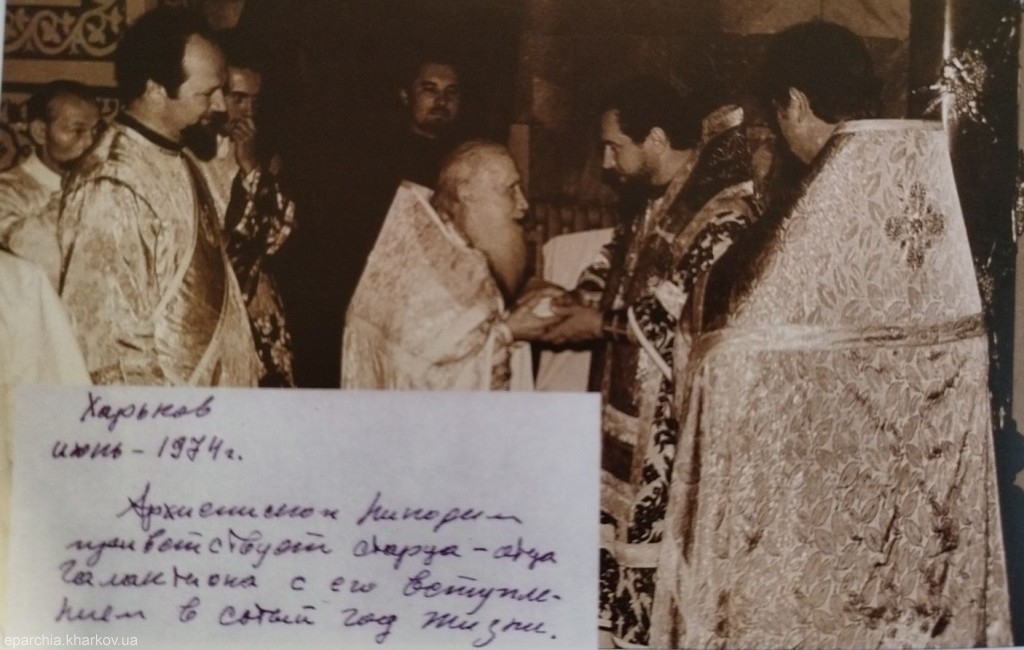 Харьков
июнь - 1974 г.
Архиепископ Никодим
приветствует старца - отца
Галактиона с его вступле-
нием в сотый год жизни.
eparchia.kharkov.ua